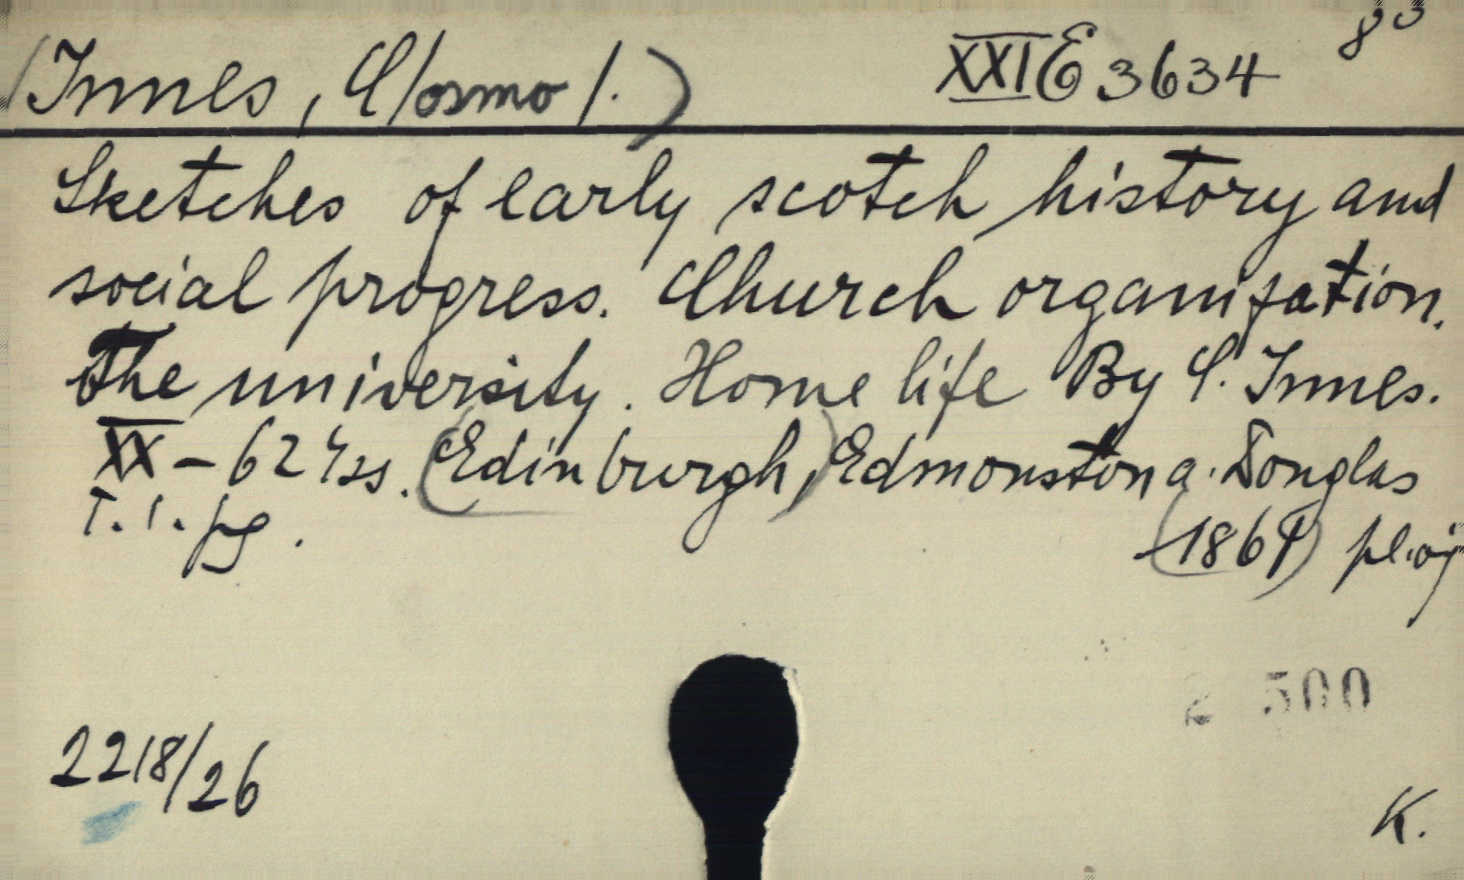 (Innes, C/osmo/.) XXI E 3634 8°
Sketches of early scotch history and
social progress. Church organisation.
The university. Home life By C. Innes.
XX - 624 ss. (Edinburgh,) Edmonston a. Douglas
T. 1. pg. (1861)
2 500
2218/26
K.